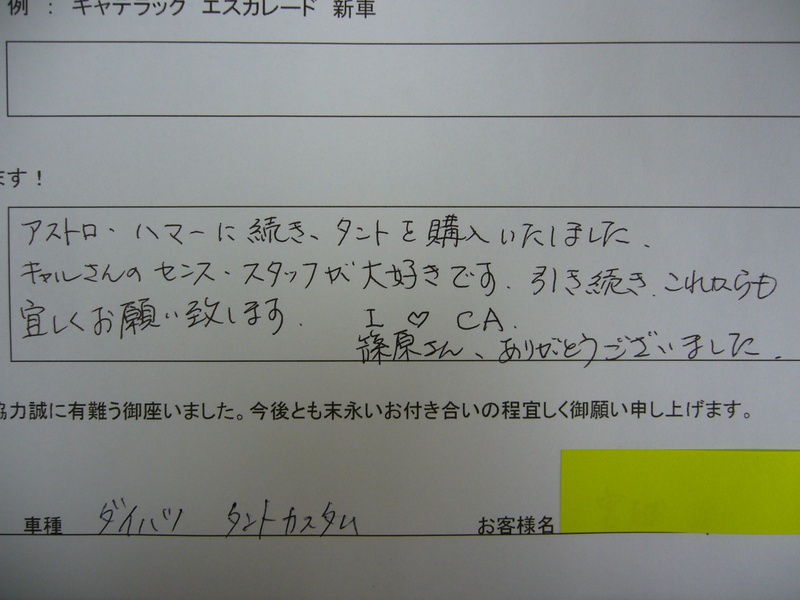 例 : キャデラック エスカレード 新車
ます!
アストロ・ハマーに続き、タントを購入いたしました.
キャルさんのセンス・スタッフが大好きです. 引き続き、これからも
宜しくお願い致します. I ♡ CA.
篠原さん、ありがとうございました.
協力誠に有難う御座いました。今後とも末永いお付き合いの程宜しく御願い申し上げます。
車種 ダイハツ タントカスタム お客様名